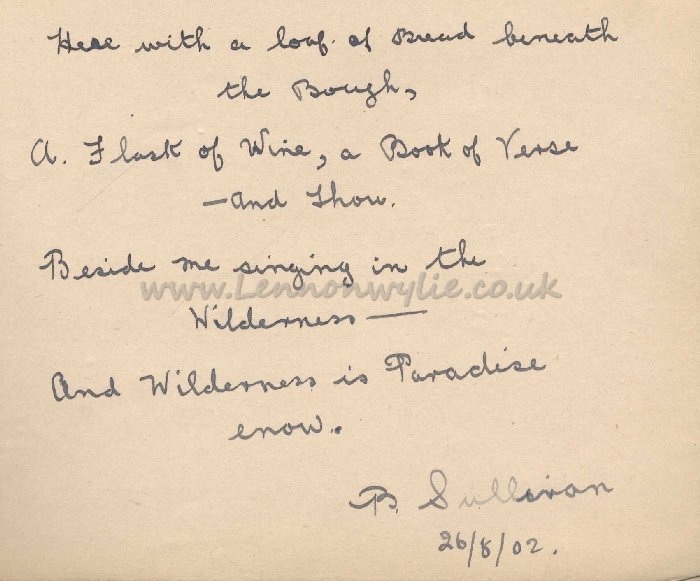 Here with a loaf of Bread beneath
the Bough,
A. Flask of Wine, a Book of Verse
—And Thou.
Beside me singing in the
www.Lennonwylie.co.uk
Wilderness —
And Wilderness is Paradise
enow.
B. Sullivan
26/8/02.